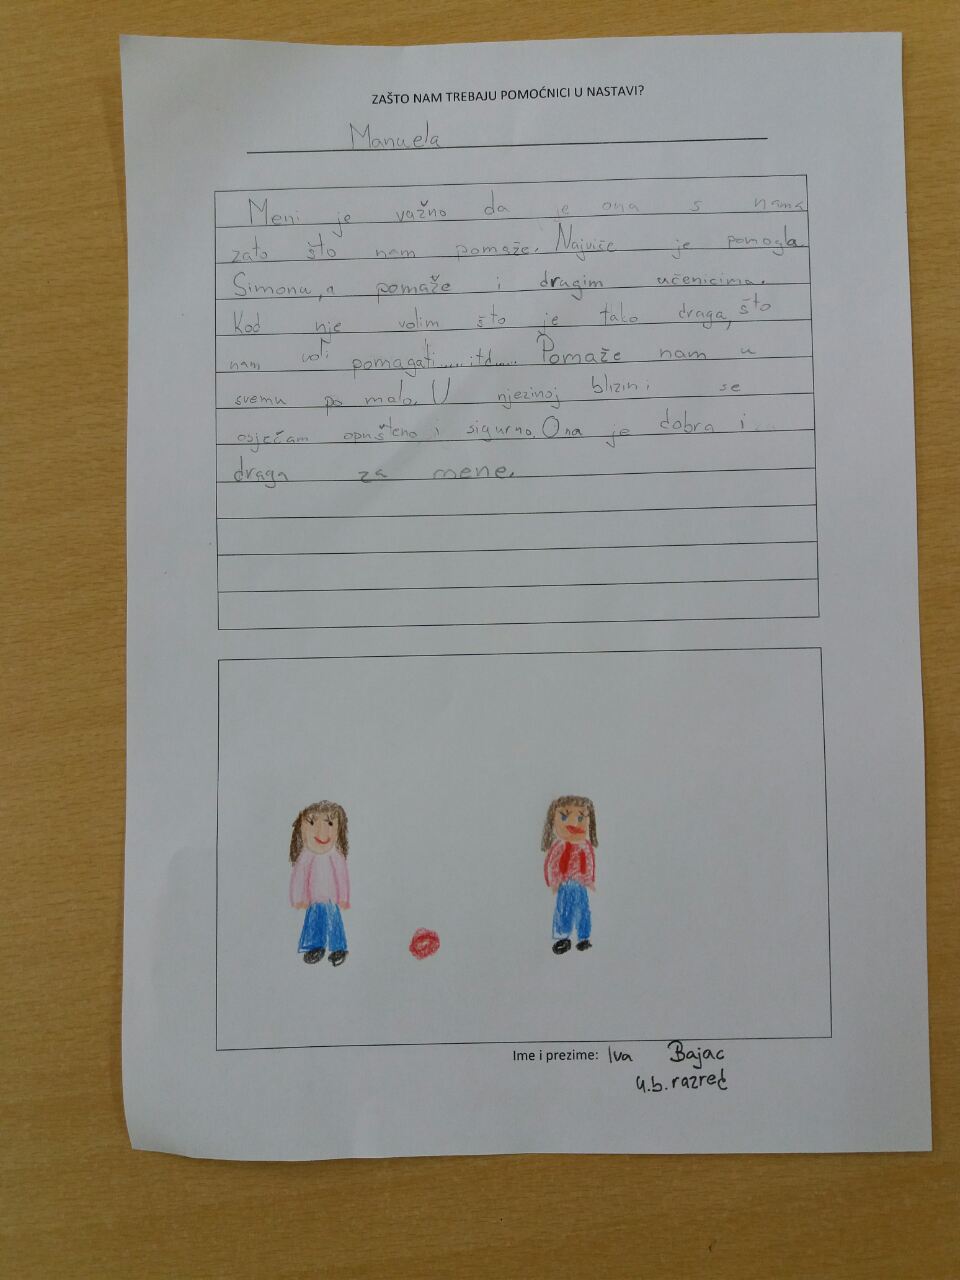 ZAŠTO NAM TREBAJU POMOĆNICI U NASTAVI?
Manuela
Meni je važno da je ona s nama
zato što nam pomaže. Najviće je pomogla
Simonu, a pomaže i drugim učenicima.
Kod nje volim što je tako draga, što
nam voli pomagati......itd..... Pomaže nam u
svemu po malo. U njezinoj blizini se
osječam opušteno i sigurno. Ona je dobra i
draga za mene.
Ime i prezime: Iva Bajac
4.b. razred